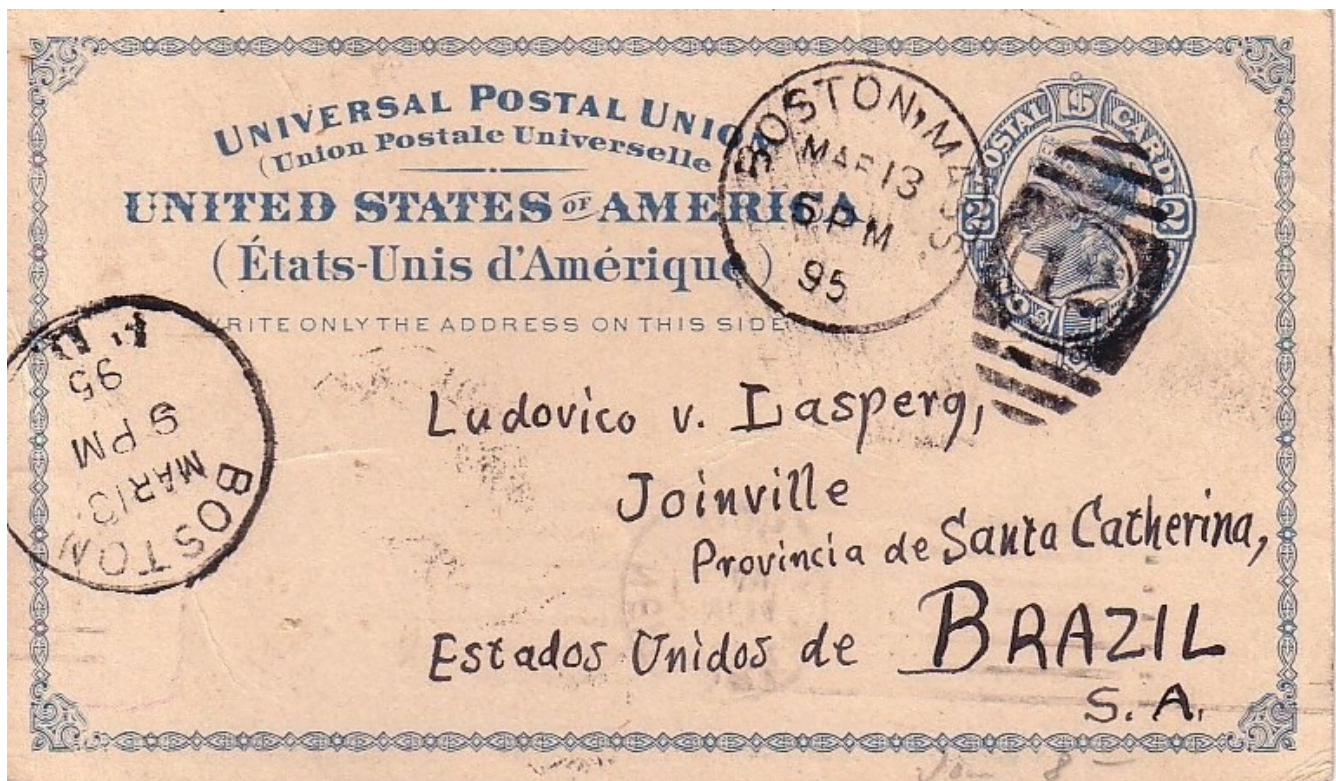 UNIVERSAL POSTAL UNION
(Union Postale Universelle
UNITED STATES OF AMERICA
(États-Unis d'Amérique)
WRITE ONLY THE ADDRESS ON THIS SIDE
BOSTON, MASS
MAR 13
6 PM
95
POSTAL CARD
2 2
BOSTON
MAR 13.
9 PM
95
Ludovico v. Lasperg,
Joinville
Provincia de Santa Catherina,
Estados Unidos de BRAZIL
S. A.